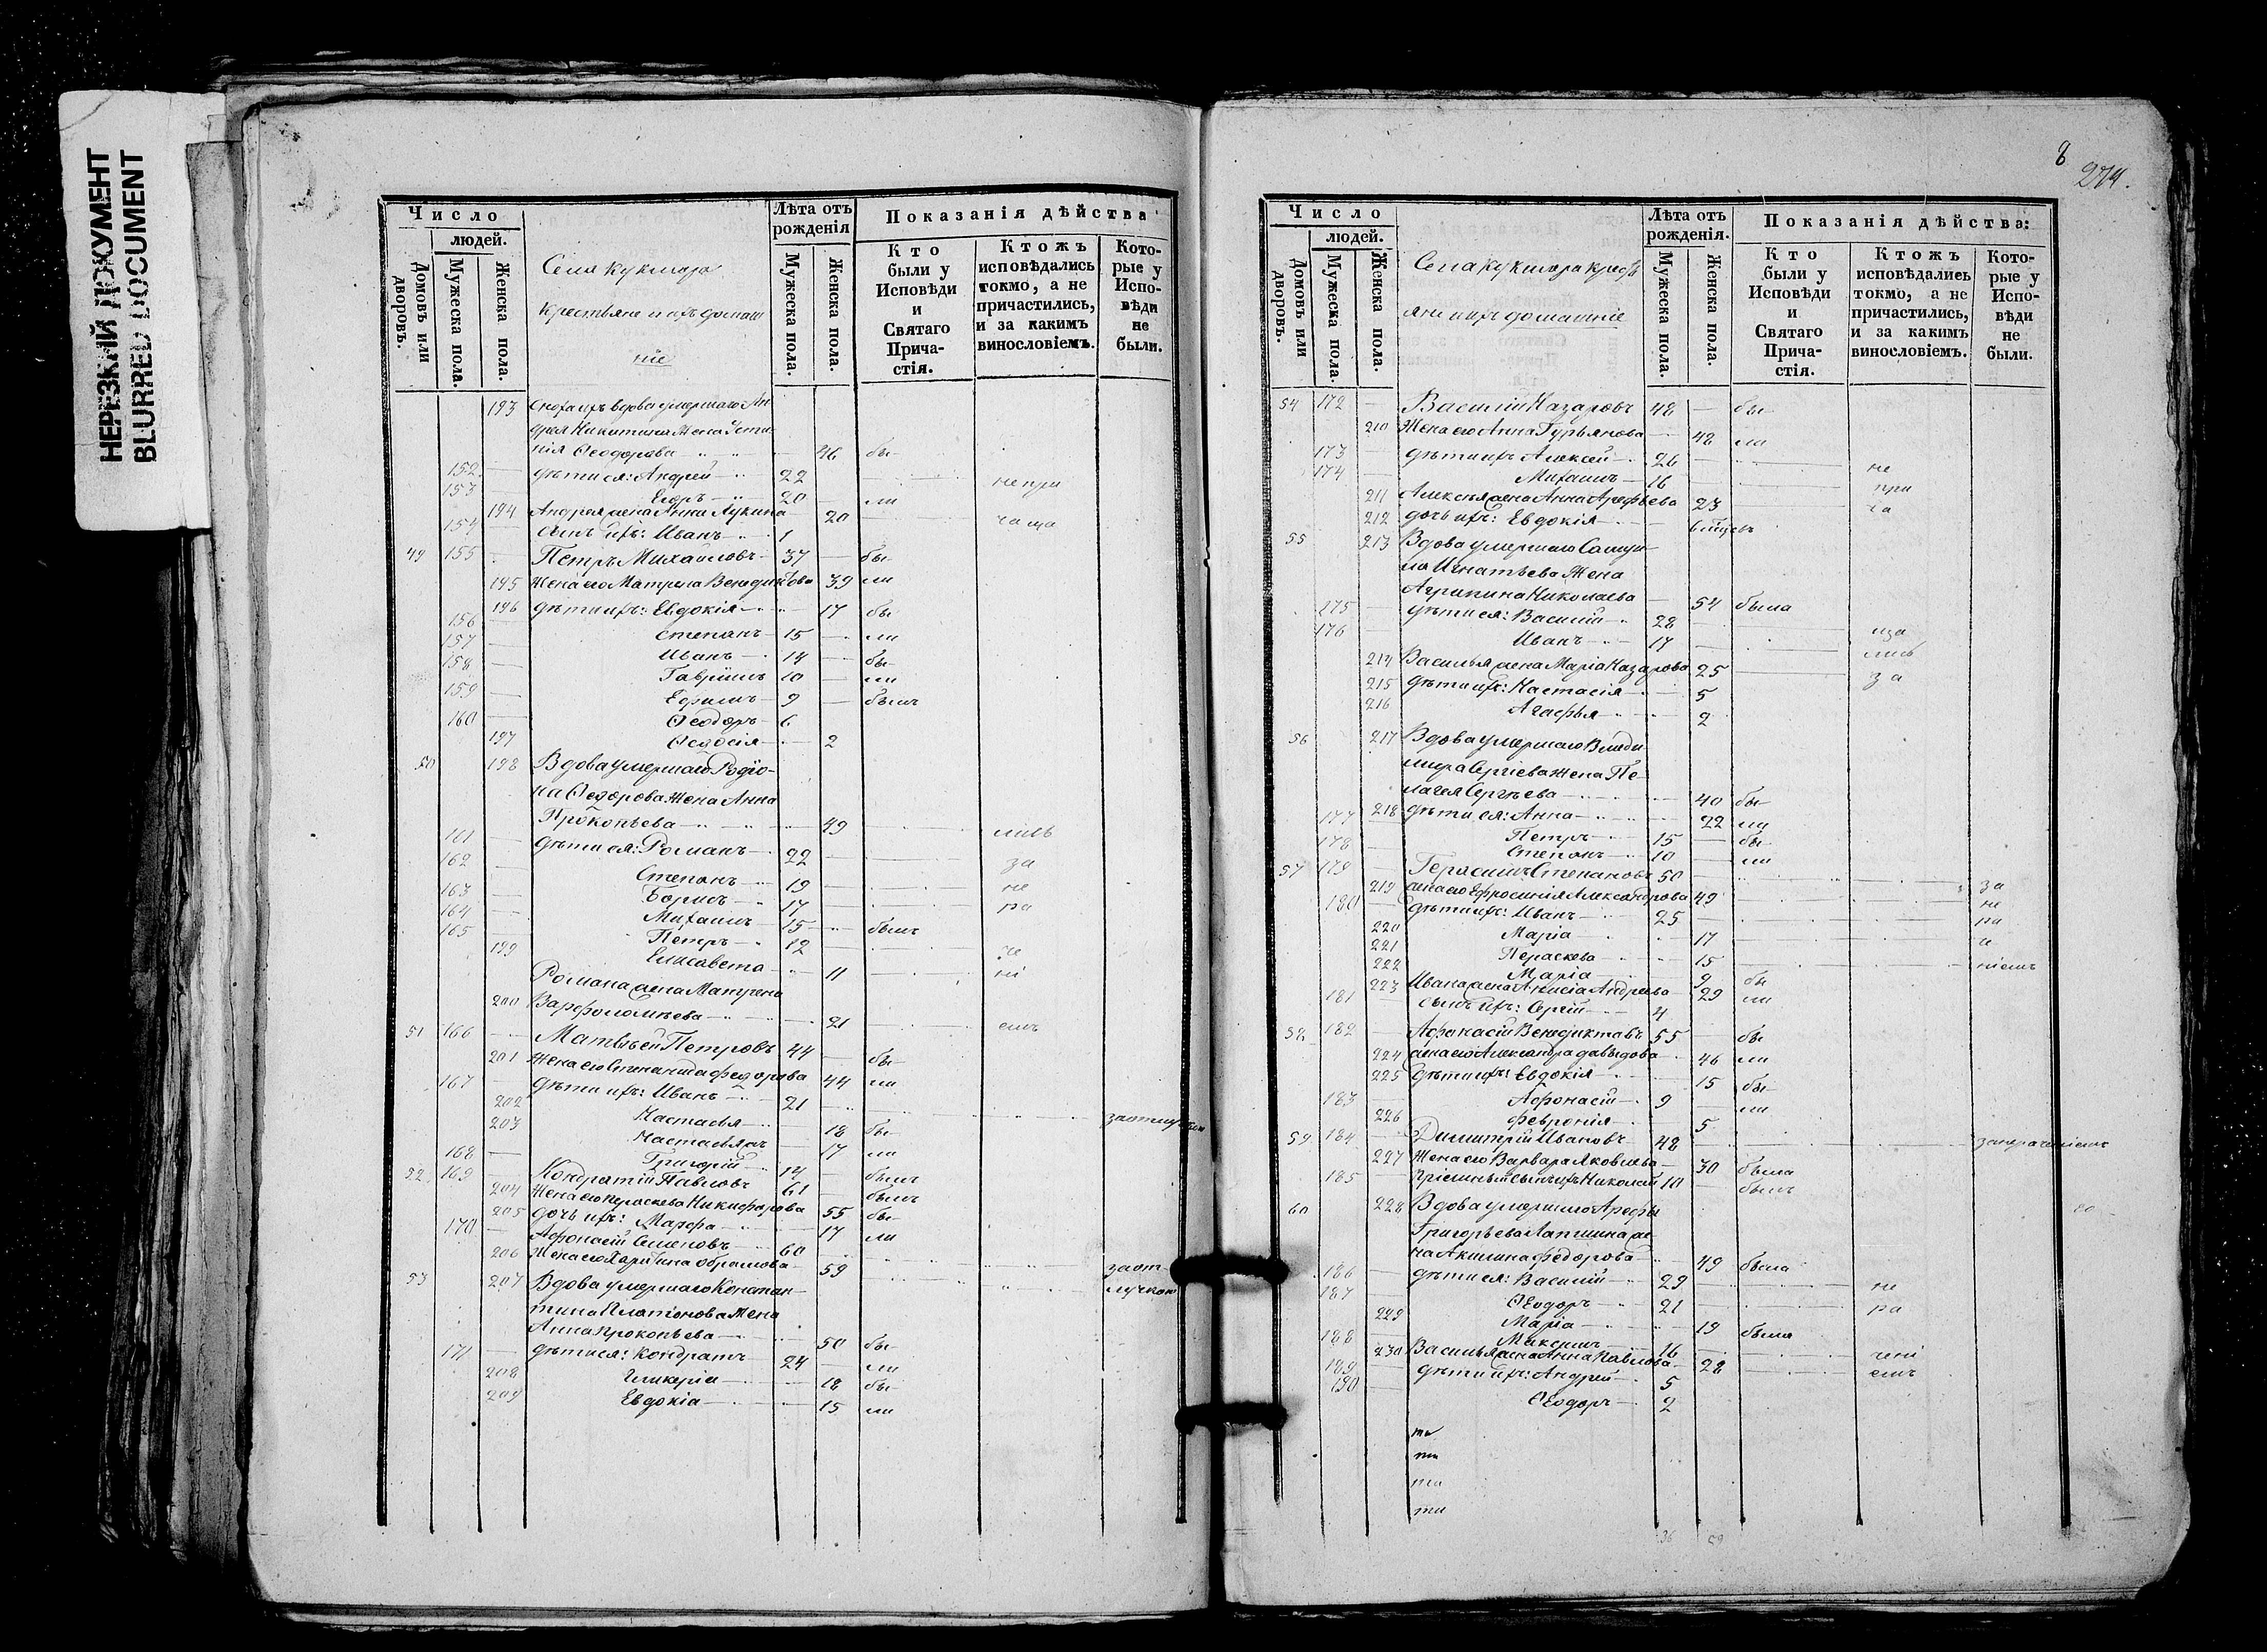 НЕРЕЗКИЙ ДОКУМЕНТ
BLURRED DOCUMENT
Число
людей.
Домовъ или дворовъ.
Мужеска пола.
Женска пола.
Села Кукмора
крестьяне и ихъ домаш
ніе
Лѣта отъ рожденія
Мужеска пола.
Женска пола.
Показанія дѣйства
Кто были у Исповѣди и Святаго Прича-стія.
Ктожъ исповѣдались токмо, а не причастились, и за какимъ винословіемъ.
Кото-рые у Испо-вѣди не были.
193 Сноха ихъ вдова умершаго Ан
дрея Никитина жена Усти
нія Ѳеодорова 46 бы
152 дѣти ея: Андрей 22 непри
153 Егоръ 20 ли
194 Андрея жена Анна Лукина 20 чаща
154 сынъ ихъ: Иванъ 1
49 155 Петръ Михайловъ 37 бы
195 Жена его Матрена Венедиктова 39 ли
196 дѣти ихъ: Евдокія 17 бы
156 Степанъ 15 ли
157 Иванъ 14 бы
158 Гавріилъ 10 ли
159 Ефимъ 9 былъ
160 Ѳеодоръ 6
197 Ѳеодосія 2
50 198 Вдова умершаго Родіо-
на Ѳедорова жена Анна
Прокопьева 49 лись
161 дѣти ея: Романъ 22
162 Степанъ 19 за
163 Борисъ 17 не
164 Михаилъ 15 былъ ра
165 Петръ 12
199 Елисавета 11 че
Романа жена Матрена ні
200 Варфоломѣева 21 емъ
51 166 Матвѣй Петровъ 44 бы
201 Жена его Степанида Федорова 44 ли
167 дѣти ихъ: Иванъ 21
202 Настасья 18 бы
203 Настасья 17 ли
168 Григорій 14 былъ
52 169 Кондратій Павловъ 61 былъ
204 Жена его Параскева Никифорова 55 бы
205 дочь ихъ: Марфа 17 ли
170 Афонасій Семеновъ 60
206 Жена его Харитина Обрамова 59 заот
53 207 Вдова умершаго Констан-
тина Платонова жена лучкою
Анна Прокопьева 50 бы
171 дѣти ея: Кондратъ 24 ли
208 Гликерія 18 бы
209 Евдокіа 15 ли
8
274.
Число
людей.
Домовъ или дворовъ.
Мужеска пола.
Женска пола.
Села Кукмора кресть
яне и ихъ домашніе
Лѣта отъ рожденія.
Мужеска пола.
Женска пола.
Показанія дѣйства:
Кто были у Исповѣди и Святаго Прича-стія.
Ктожъ исповѣдались токмо, а не причастились, и за какимъ винословіемъ.
Кото-рые у Испо-вѣди не были.
54 172 Василій Назаровъ 48 бы
210 Жена его Анна Гурьянова 48 ли
173 дѣти ихъ Алексей 26 не
174 Михаилъ 16 при
211 Алексѣя жена Анна Арефьева 23 ча
212 дочь ихъ: Евдокія
55 213 Вдова умершаго
Игнатьева жена
Агрипина Николаева 54 была
175 дѣти ея: Василій 28 ща
176 Иванъ 17 лись
214 Василья жена Марія Назарова 25 за
215 дѣти ихъ: Настасія 5
216 Агафья 2
56 217 Вдова умершаго Влади
мира Сергіева жена Пе
лагея Сергѣева 40 бы
218 дѣти ея: Анна 22 ли
177 Петръ 15 бы
178 Степанъ 10 ли
57 179 Герасимъ Степановъ 50 за
219 жена его Ефросинія Александрова 49 не
180 дѣти ихъ: Иванъ 25 ра
220 Марія 17 че
221 Пераскева 15 ніемъ
222 Марія 9 бы
223 Ивана жена Анисіа Андреева 29 ли
181 сынъ ихъ: Сергій 4
58 182 Афонасій Венедиктовъ 55 бы
224 жена его Александра Давыдова 46 ли
225 дѣти ихъ: Евдокія 15 бы
183 Афонасій 9 ли
226 Февронія 5
59 184 Димитрій Ивановъ 48
227 Жена его Варвара Яковлева 30 была
185 Пріемный сынъ ихъ Николай 10 былъ
60 228 Вдова умершаго Арефы
Григорьева Лапшина же
на Акилина Федорова 49 была
186 дѣти ея: Василій 29 не
187 Ѳеодоръ 21 ра
229 Марія 19 была
188 Максимъ 16 чені
230 Василья жена Анна Павлова 28 емъ
189 дѣти ихъ: Андрей 5
190 Ѳеодоръ 2